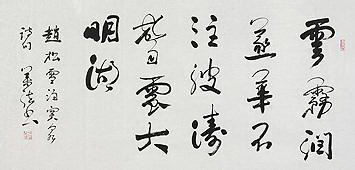 雲霧潤
蒸華不
注波濤
聲震大
明湖
趙松雪突泉
詩句